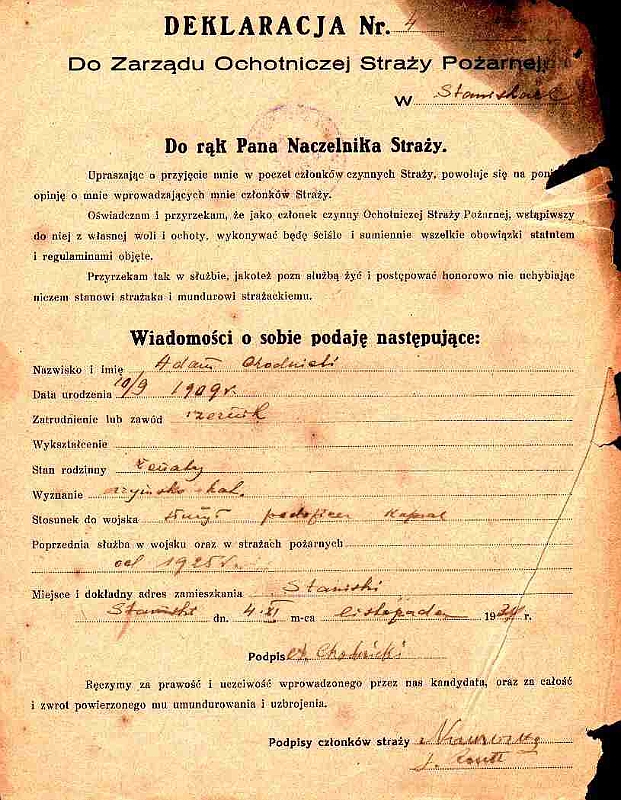 DEKLARACJA Nr. 4
Do Zarządu Ochotniczej Straży Pożarnej
W
Do rąk Pana Naczelnika Straży.
Upraszając o przyjęcie mnie w poczet członków czynnych Straży, powołuję się na
opinję o mnie wprowadzających mnie członków Straży.
Oświadczam i przyrzekam, że jako członek czynny Ochotniczej Straży Pożarnej, wstąpiwszy
do niej z własnej woli i ochoty, wykonywać będę ściśle i sumiennie wszelkie obowiązki statutem
i regulaminami objęte.
Przyrzekam tak w służbie, jakoteż poza służbą żyć i postępować honorowo nie uchybiając
niczem stanowi strażaka i mundurowi strażackiemu.
Wiadomości o sobie podaję następujące:
Nazwisko i imię Adam Chodnicki
Data urodzenia 10/9 1909 r.
Zatrudnienie lub zawód
Wykształcenie
Stan rodzinny żonaty
Wyznanie rzymsko kat.
Stosunek do wojska służył podoficer kapral
Poprzednia służba w wojsku oraz w strażach pożarnych
od 1925 r.
Miejsce i dokładny adres zamieszkania Staniski
Staniski dn. 4.XI m-ca listopada 19 r.
Podpis A. Chodnicki
Ręczymy za prawość i uczciwość wprowadzonego przez nas kandydata, oraz za całość
i zwrot powierzonego mu umundurowania i uzbrojenia.
Podpisy członków straży